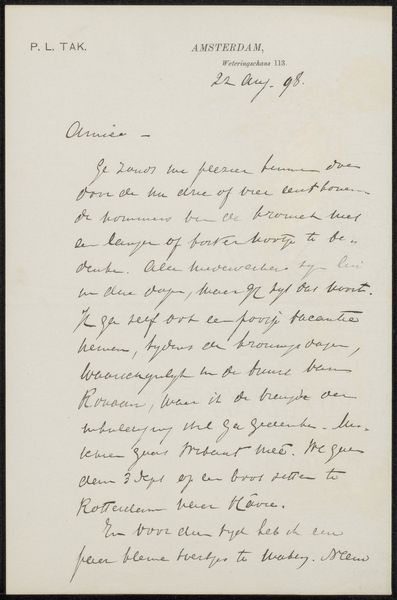 P. L. TAK.
AMSTERDAM,
Weteringschans 113.
22 Aug. 98.
Amice —
Ge zoudt me plezier kunnen doen
door de nu drie of vier eerstkomende
de nommers van de kroniek met
een langer of korter nootje te be-
denken. Alle medewerkers zijn lui
in deze dagen, maar gij zijt dat nooit.
Ik ga zelf ook een poosje vacantie
nemen, tijdens de kroningsdagen,
waarschijnlijk in de buurt van
Rouaan, waar ik de vreugde der
inhuldiging wil gaan gedenken. Mis-
schien gaat Wibaut meê. We gaan
den 3 Sept op een boot zitten te
Rotterdam naar Hâvre.
En voor dien tijd heb ik een
paar kleine voertjes te maken. Neem